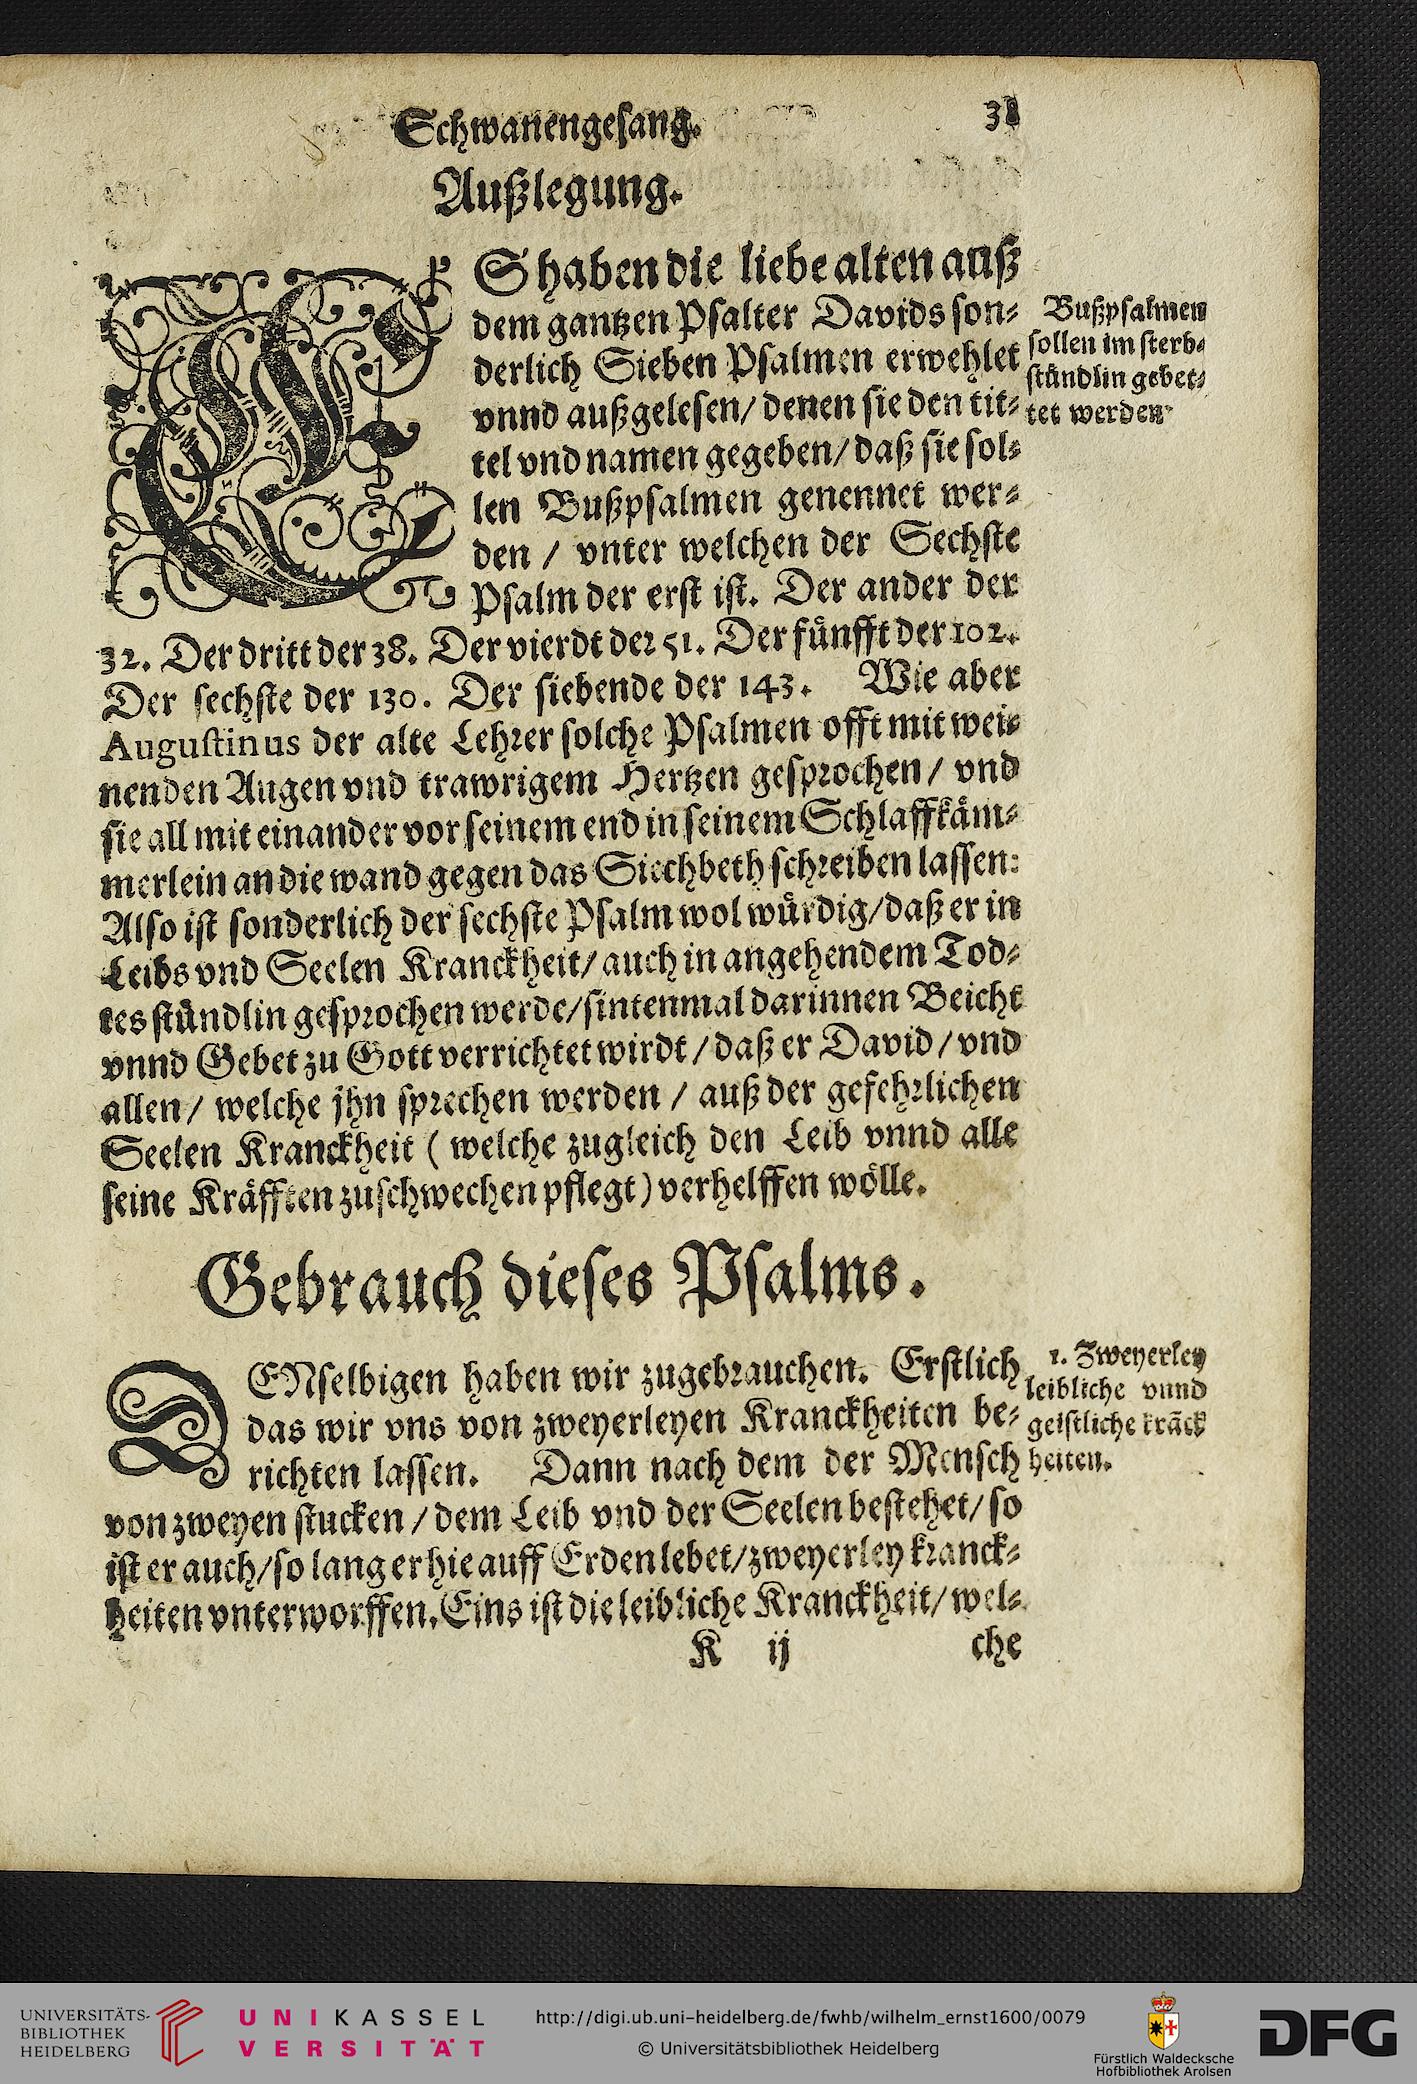 Schwanengesang. 38
Außlegung.
ES haben die liebe alten auß
dem gantzen Psalter Davids son-
derlich Sieben Psalmen erwehlet
vnnd außgelesen/ denen sie den tit-
tel vnd namen gegeben/ daß sie sol-
len Bußpsalmen genennet wer-
den / vnter welchen der Sechste
Psalm der erst ist. Der ander der
32. Der dritt der 38. Der vierdt der 51. Der fünfft der 102.
Der sechste der 130. Der siebende der 143. Wie aber
Augustinus der alte Lehrer solche Psalmen offt mit wei-
nenden Augen vnd trawrigem Hertzen gesprochen/ vnd
sie all mit einander vor seinem end in seinem Schlaffkäm-
merlein an die wand gegen das Siechbeth schreiben lassen:
Also ist sonderlich der sechste Psalm wol würdig/ daß er in
Leibs vnd Seelen Kranckheit/ auch in angehendem Tod-
tes stündlin gesprochen werde/ sintenmal darinnen Beicht
vnnd Gebet zu Gott verrichtet wirdt / daß er David / vnd
allen / welche jhn sprechen werden / auß der gefehrlichen
Seelen Kranckheit ( welche zugleich den Leib vnnd alle
seine Kräfften zuschwechen pflegt) verhelffen wölle.
Bußpsalmen
sollen im sterb-
stündlin gebet-
tet werden
Gebrauch dieses Psalms.
DENselbigen haben wir zugebrauchen. Erstlich
das wir vns von zweyerleyen Kranckheiten be-
richten lassen. Dann nach dem der Mensch
von zweyen stucken / dem Leib vnd der Seelen bestehet/ so
ist er auch/ so lang er hie auff Erden lebet/ zweyerley kranck-
heiten vnterworffen. Eins ist die leibliche Kranckheit/ wel-
1. Zweyerley
leibliche vnnd
geistliche krãck
heiten.
K ij che
UNIVERSITÄTS-
BIBLIOTHEK
HEIDELBERG
UNIKASSEL
VERSITÄT
http://digi.ub.uni-heidelberg.de/fwhb/wilhelm_ernst1600/0079
© Universitätsbibliothek Heidelberg
Fürstlich Waldecksche
Hofbibliothek Arolsen
DFG